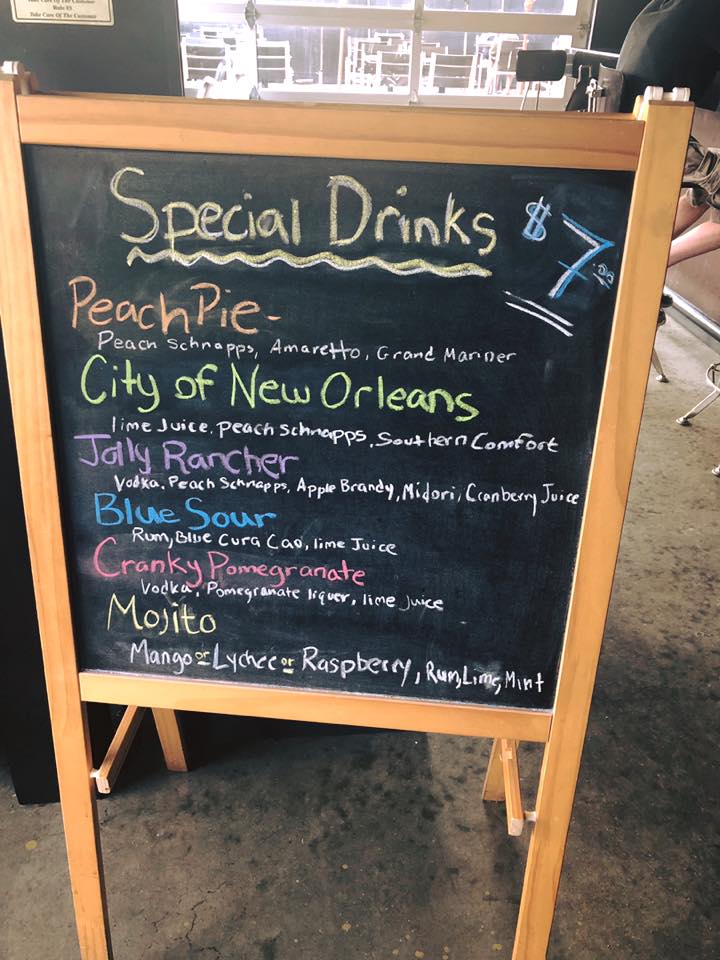 Take Care Of The Customer
Rule #3
Take Care Of The Customer
Special Drinks $7.00
Peach Pie-
Peach Schnapps, Amaretto, Grand Marnier
City of New Orleans
lime Juice, peach schnapps, Southern Comfort
Jolly Rancher
Vodka, Peach Schnapps, Apple Brandy, Midori, Cranberry Juice
Blue Sour
Rum, Blue Cura Cao, lime Juice
Cranky Pomegranate
Vodka, Pomegranate liquer, lime juice
Mojito
Mango or Lychee or Raspberry, Rum, Lime, Mint